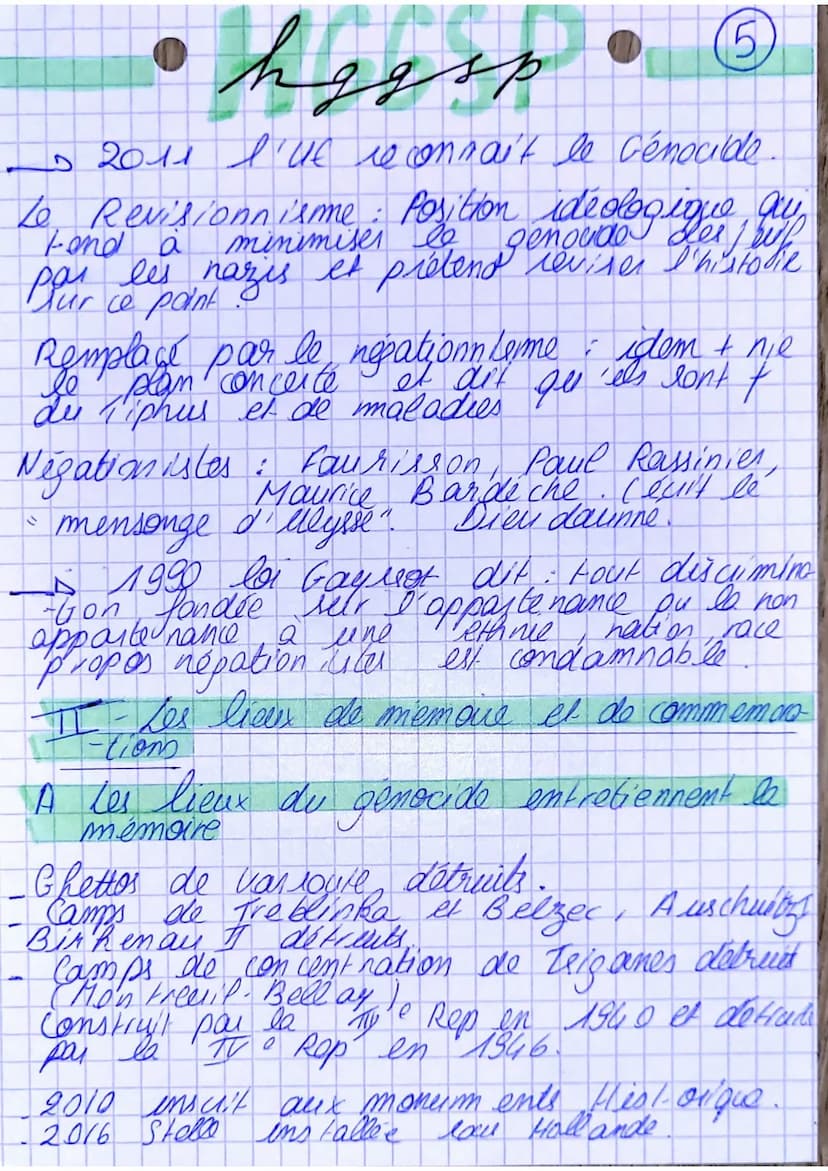 HGGSP
hggsp
5
→ 2011 l'UE reconnait le Génocide.
Le Revisionnisme : Position idéologique qui
tend à minimiser le génocide des juifs
par les nazis et prétend reviser l'histoire
sur ce point.
Remplacé par le négationnisme : idem + nie
le plan concerté et dit qu'ils sont †
du Tiphus et de maladies
Négationistes : Faurisson, Paul Rassinier,
Maurice Bardèche. (écrit le
"mensonge d'Ulysse". Dieudonne.
→ 1990 loi Gayssot dit : tout discrimina-
-tion fondée sur l'appartenance ou la non
appartenance à une ethnie, nation, race
propos négationistes est condamnable.
II - Les lieux de mémoire et de commémora-
-tions
A Les lieux du génocide entretiennent la
mémoire
- Ghettos de Varsovie détruits.
- Camps de Treblinka et Belzec, Auschwitz I
Birkenau II détruits
- Camps de concentration de Tziganes détruit
(Montreuil-Bellay)
Construit par la IIIe Rep en 1940 et détruits
par la IVe Rep en 1946.
- 2010 inscrit aux monuments Historique.
- 2016 Stelle installée Hollande.